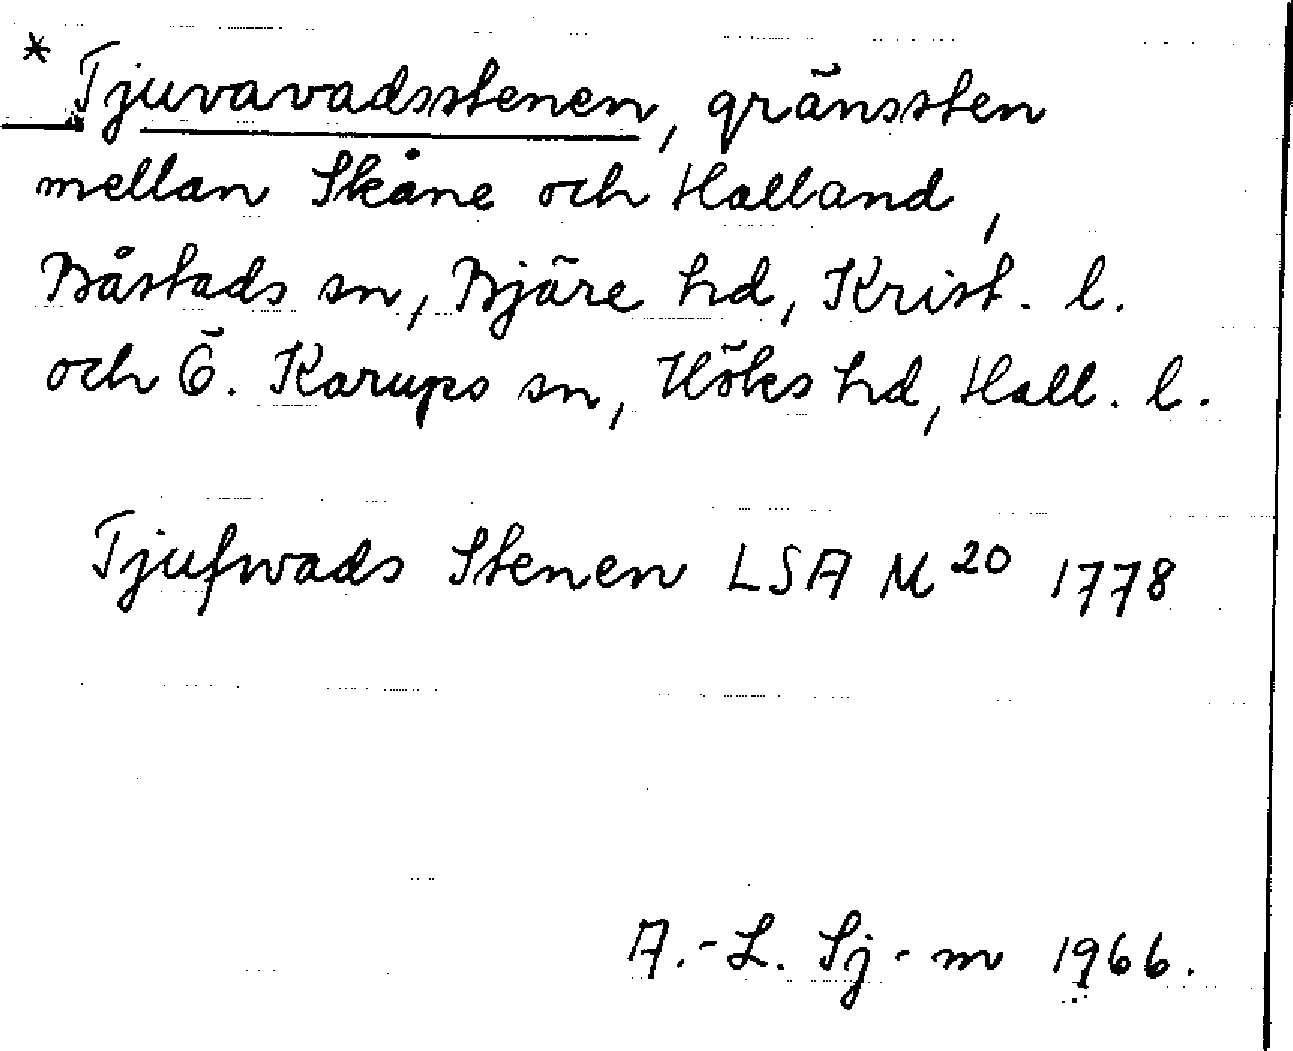 * Tjuvavadsstenen, gränssten
mellan Skåne och Halland,
Båstads sn, Bjäre hd, Krist. l.
och Ö. Karups sn, Höks hd, Hall. l.
Tjufwads Stenen LSA M 20 1778
A.-L. Sj-m 1966.